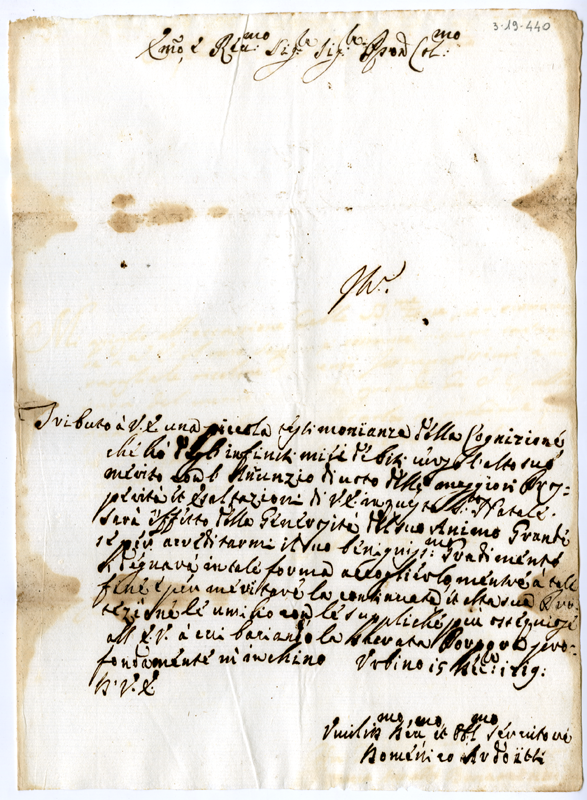 3-19-440
E.mo, e Reu:mo Sig.re Sig.re Pron Col:mo
Tributo à V.E. una piccola testimonianza della Cognizione
che hò degl'infiniti miei debiti verso l'alto suo
merito con l'Anunzio diuoto delle maggiori Pros=
perità et esaltazioni di V.E. in questo S.mo Natale.
Sarà effetto della Generosità del suo Animo Grande
se per accreditarmi il suo benigniss:mo Gradimento
si degnarà in tale forma accoglierlo mentre à tale
fine e per meritare la continuata et alta sua Pro=
tezione le umilio con le suppliche più ossequiose
all'E.V. à cui baciando la Sacrata Porpora pro=
fondamente m'inchino Urbino 15 Xbre: 1719:
D.V.E.
Umiliss.mo Deu.mo et Obl.mo Seruitore
Domenico